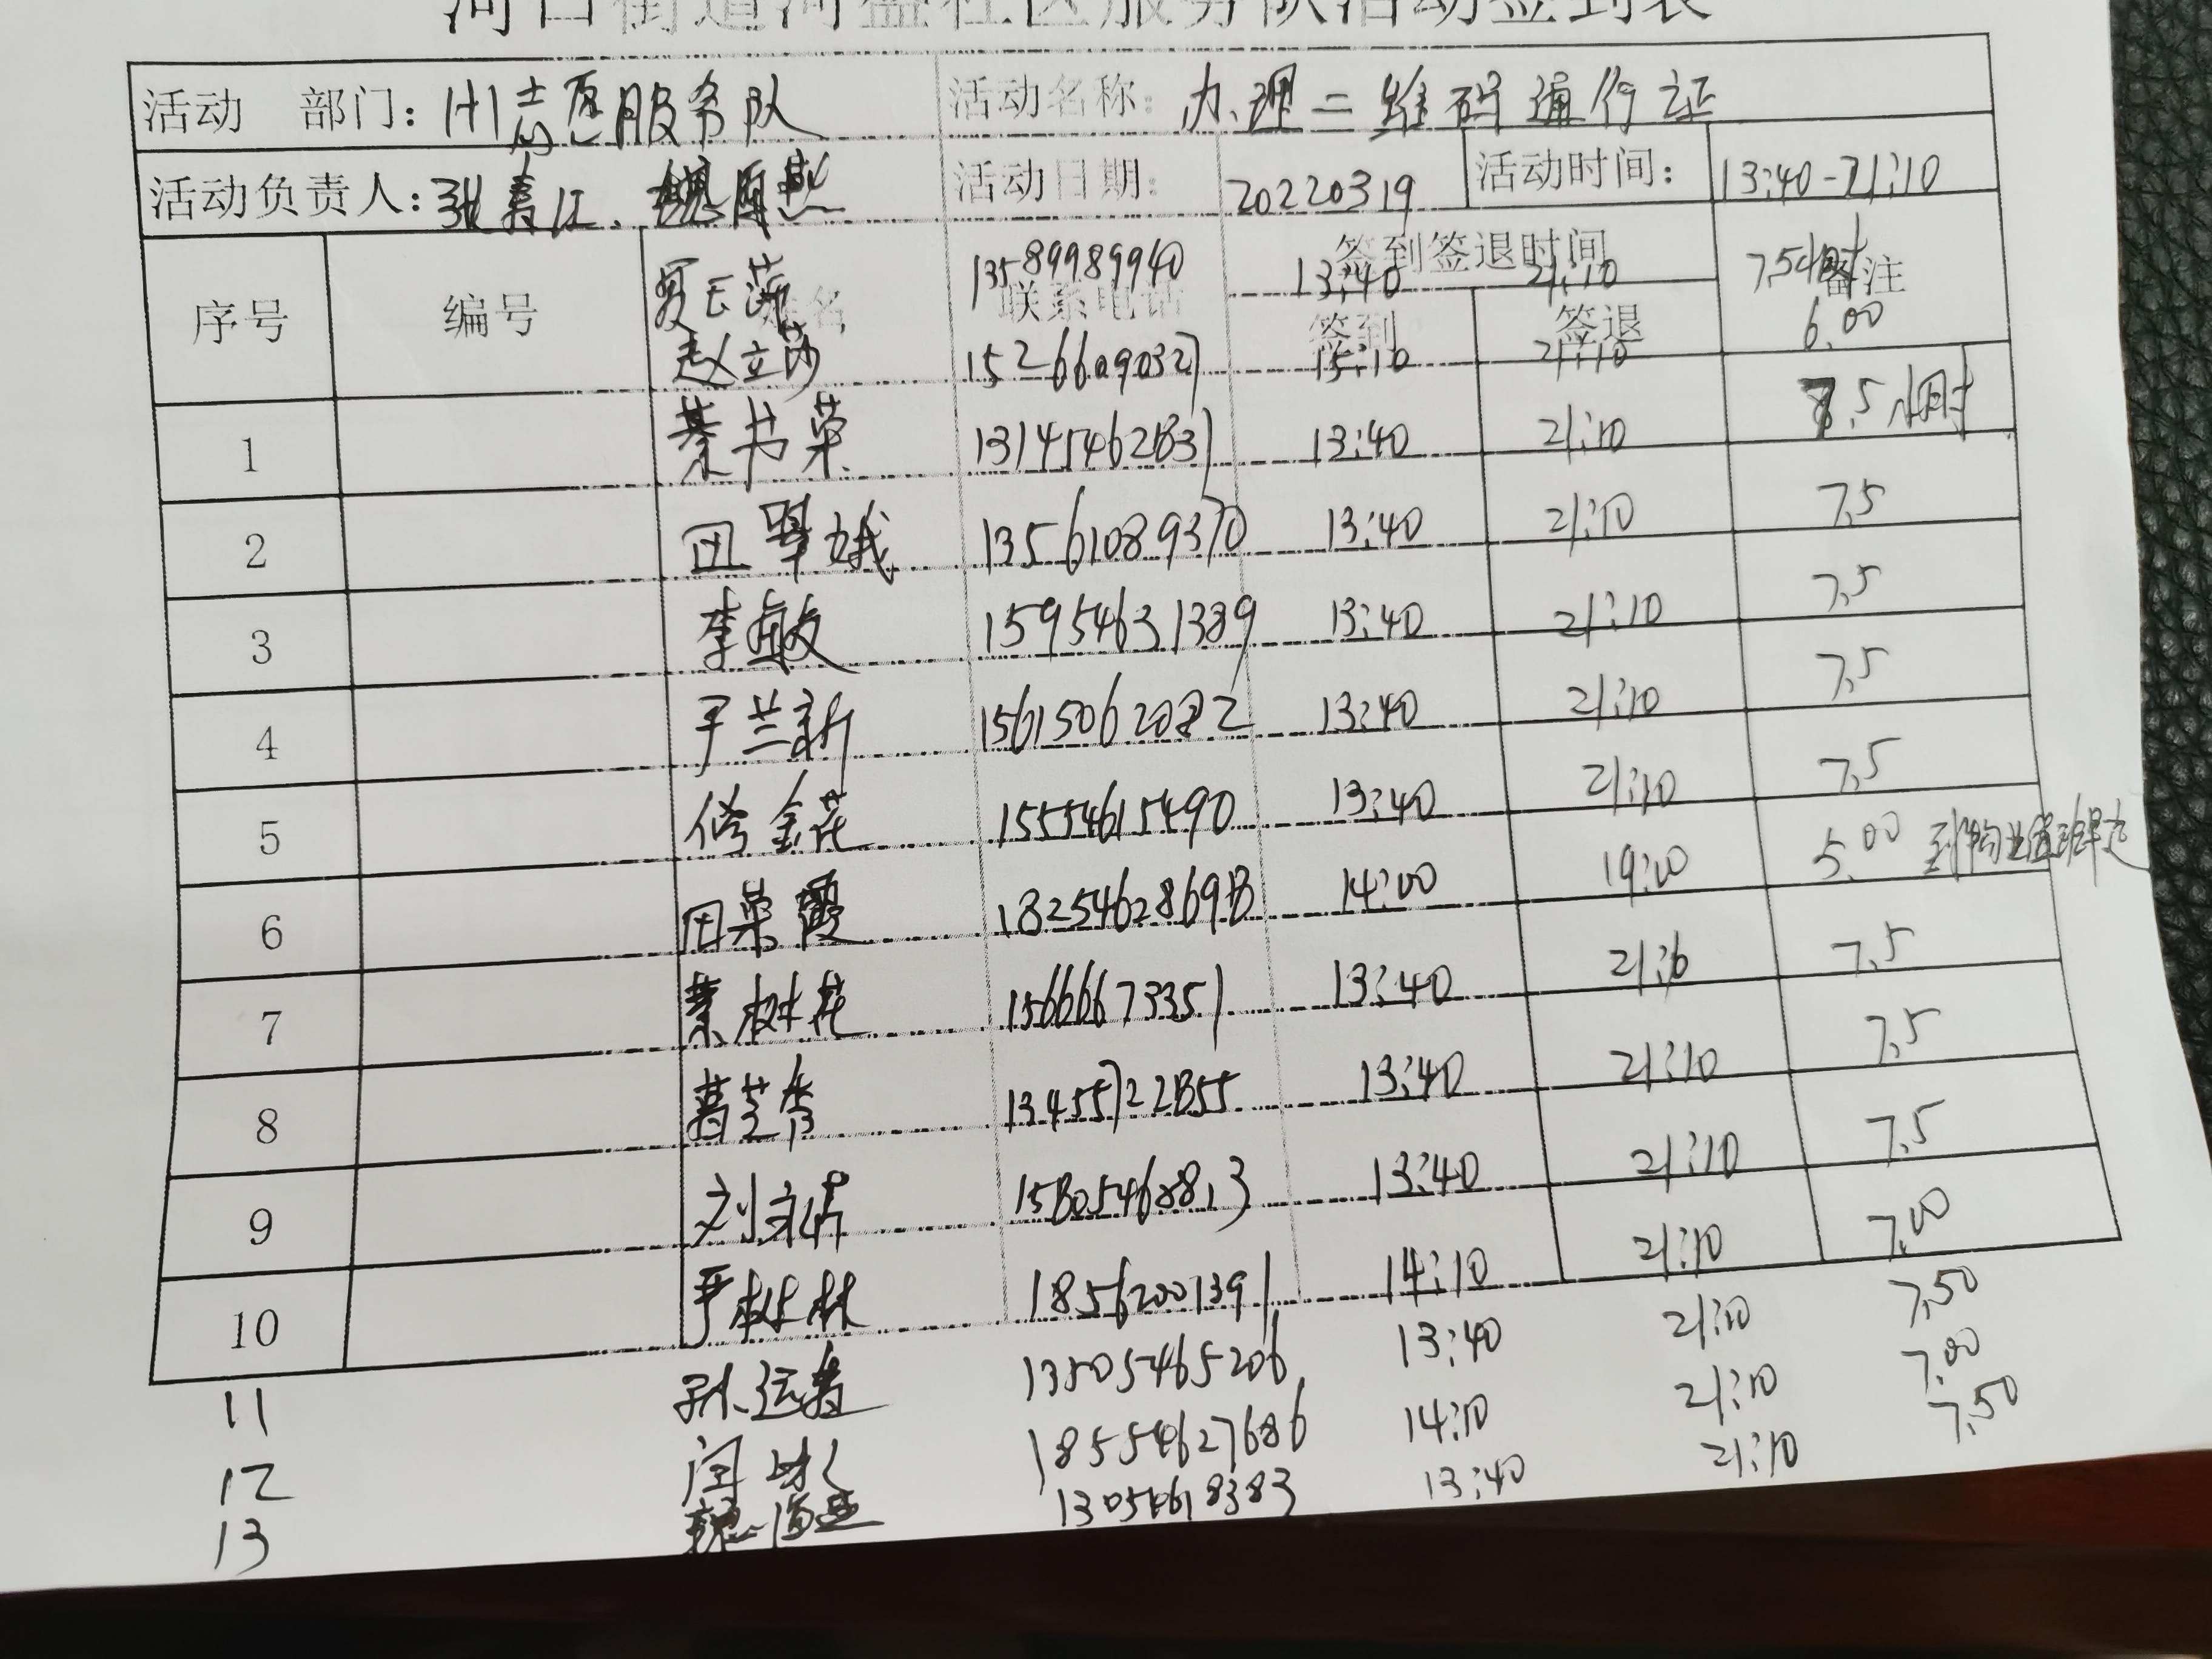 河口街道河盛社区服务队活动签到表
活动 部门: 州志愿服务队 活动名称: 办理二维码通行证
活动负责人: 张寿江、魏海燕 活动日期: 20220319 活动时间: 13:40-21:10
序号 编号 姓名 联系电话 签到签退时间 备注
签到 签退
夏玉萍 13589989940 13:40 21:10 7.5小时
赵立莎 15266209032 15:10 21:10 6.00
1 綦书荣 13:40 21:10 7.5小时
2 田翠娥 13561089370 13:40 21:10 7.5
3 李敏 15954631389 13:40 21:10 7.5
4 于兰新 15615062082 13:40 21:10 7.5
5 修金花 15554615490 13:40 21:10 7.5
6 田荣霞 14:00 19:00 5.00 到物业值班早走
7 綦树花 15666673351 13:40 7.5
8 葛芝香 13:40 21:10 7.5
9 13:40 21:10 7.5
10 严树林 18562001391 14:10 21:10 7.00
11 孙运寿 13505465206 13:40 21:10 7.50
12 18554627686 14:10 21:10 7.00
13 魏海燕 13054618383 13:40 21:10 7.50